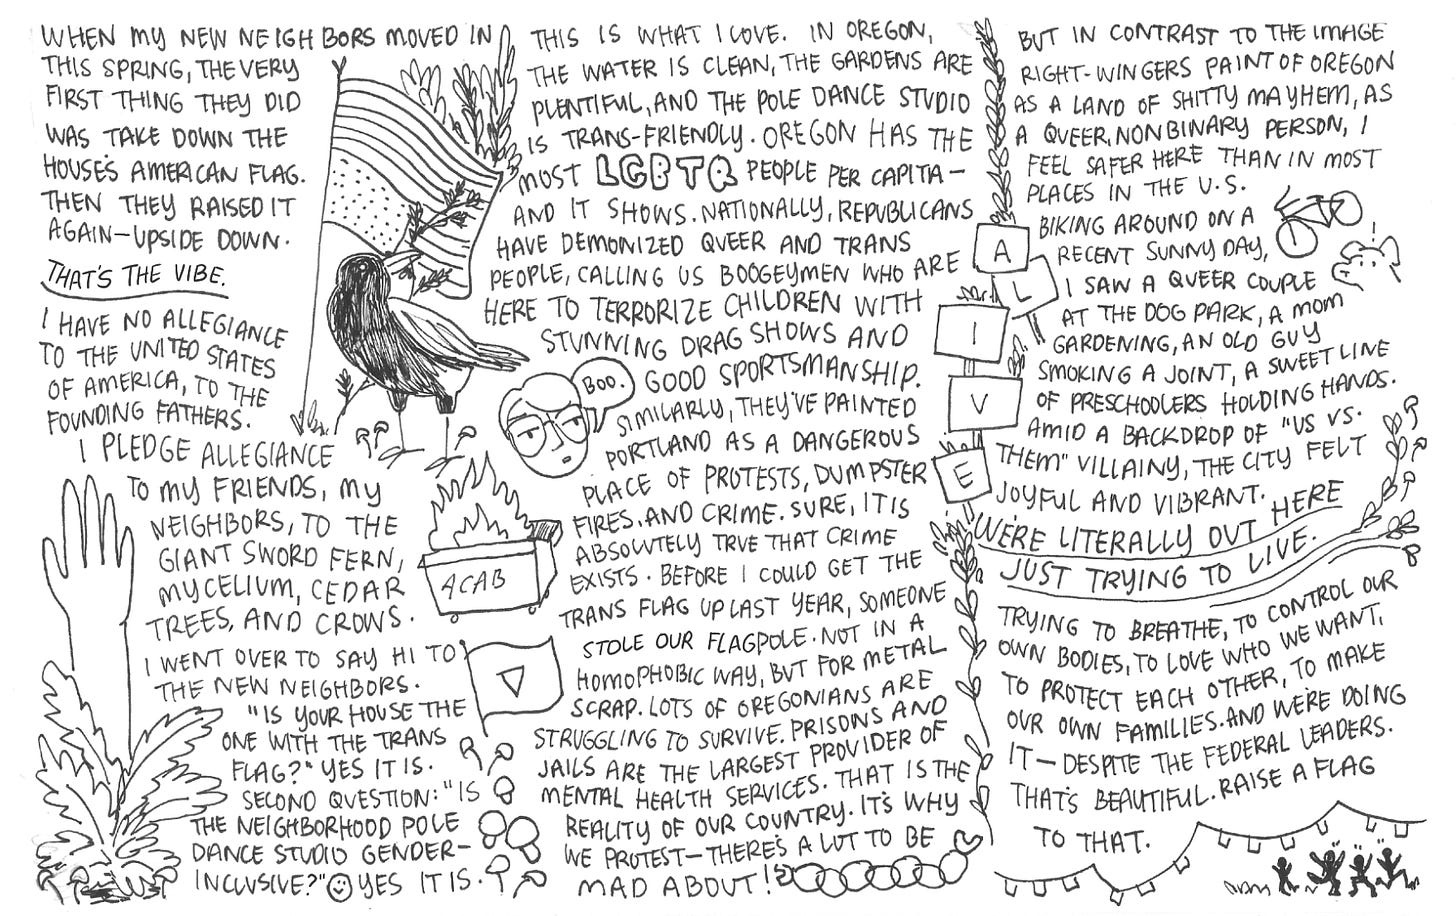 WHEN MY NEW NEIGHBORS MOVED IN
THIS SPRING, THE VERY
FIRST THING THEY DID
WAS TAKE DOWN THE
HOUSE'S AMERICAN FLAG.
THEN THEY RAISED IT
AGAIN—UPSIDE DOWN.
THAT'S THE VIBE.
I HAVE NO ALLEGIANCE
TO THE UNITED STATES
OF AMERICA, TO THE
FOUNDING FATHERS.
I PLEDGE ALLEGIANCE
TO MY FRIENDS, MY
NEIGHBORS, TO THE
GIANT SWORD FERN,
MYCELIUM, CEDAR
TREES, AND CROWS.
ACAB
I WENT OVER TO SAY HI TO
THE NEW NEIGHBORS.
"IS YOUR HOUSE THE
ONE WITH THE TRANS
FLAG?" YES IT IS.
SECOND QUESTION: "IS
THE NEIGHBORHOOD POLE
DANCE STUDIO GENDER-
INCLUSIVE?" YES IT IS.
THIS IS WHAT I LOVE. IN OREGON,
THE WATER IS CLEAN, THE GARDENS ARE
PLENTIFUL, AND THE POLE DANCE STUDIO
IS TRANS-FRIENDLY. OREGON HAS THE
MOST LGBTQ PEOPLE PER CAPITA—
AND IT SHOWS. NATIONALLY, REPUBLICANS
HAVE DEMONIZED QUEER AND TRANS
PEOPLE, CALLING US BOOGEYMEN WHO ARE
HERE TO TERRORIZE CHILDREN WITH
STUNNING DRAG SHOWS AND
GOOD SPORTSMANSHIP.
BOO.
SIMILARLY, THEY'VE PAINTED
PORTLAND AS A DANGEROUS
PLACE OF PROTESTS, DUMPSTER
FIRES, AND CRIME. SURE, IT IS
ABSOLUTELY TRUE THAT CRIME
EXISTS. BEFORE I COULD GET THE
TRANS FLAG UP LAST YEAR, SOMEONE
STOLE OUR FLAGPOLE. NOT IN A
HOMOPHOBIC WAY, BUT FOR METAL
SCRAP. LOTS OF OREGONIANS ARE
STRUGGLING TO SURVIVE. PRISONS AND
JAILS ARE THE LARGEST PROVIDER OF
MENTAL HEALTH SERVICES. THAT IS THE
REALITY OF OUR COUNTRY. IT'S WHY
WE PROTEST—THERE'S A LOT TO BE
MAD ABOUT!
A
L
I
V
E
BUT IN CONTRAST TO THE IMAGE
RIGHT-WINGERS PAINT OF OREGON
AS A LAND OF SHITTY MAYHEM, AS
A QUEER, NONBINARY PERSON, I
FEEL SAFER HERE THAN IN MOST
PLACES IN THE U.S.
BIKING AROUND ON A
RECENT SUNNY DAY,
I SAW A QUEER COUPLE
AT THE DOG PARK, A MOM
GARDENING, AN OLD GUY
SMOKING A JOINT, A SWEET LINE
OF PRESCHOOLERS HOLDING HANDS.
AMID A BACKDROP OF "US VS.
THEM" VILLAINY, THE CITY FELT
JOYFUL AND VIBRANT.
WE'RE LITERALLY OUT HERE
JUST TRYING TO LIVE.
TRYING TO BREATHE, TO CONTROL OUR
OWN BODIES, TO LOVE WHO WE WANT,
TO PROTECT EACH OTHER, TO MAKE
OUR OWN FAMILIES. AND WE'RE DOING
IT—DESPITE THE FEDERAL LEADERS.
THAT'S BEAUTIFUL. RAISE A FLAG
TO THAT.